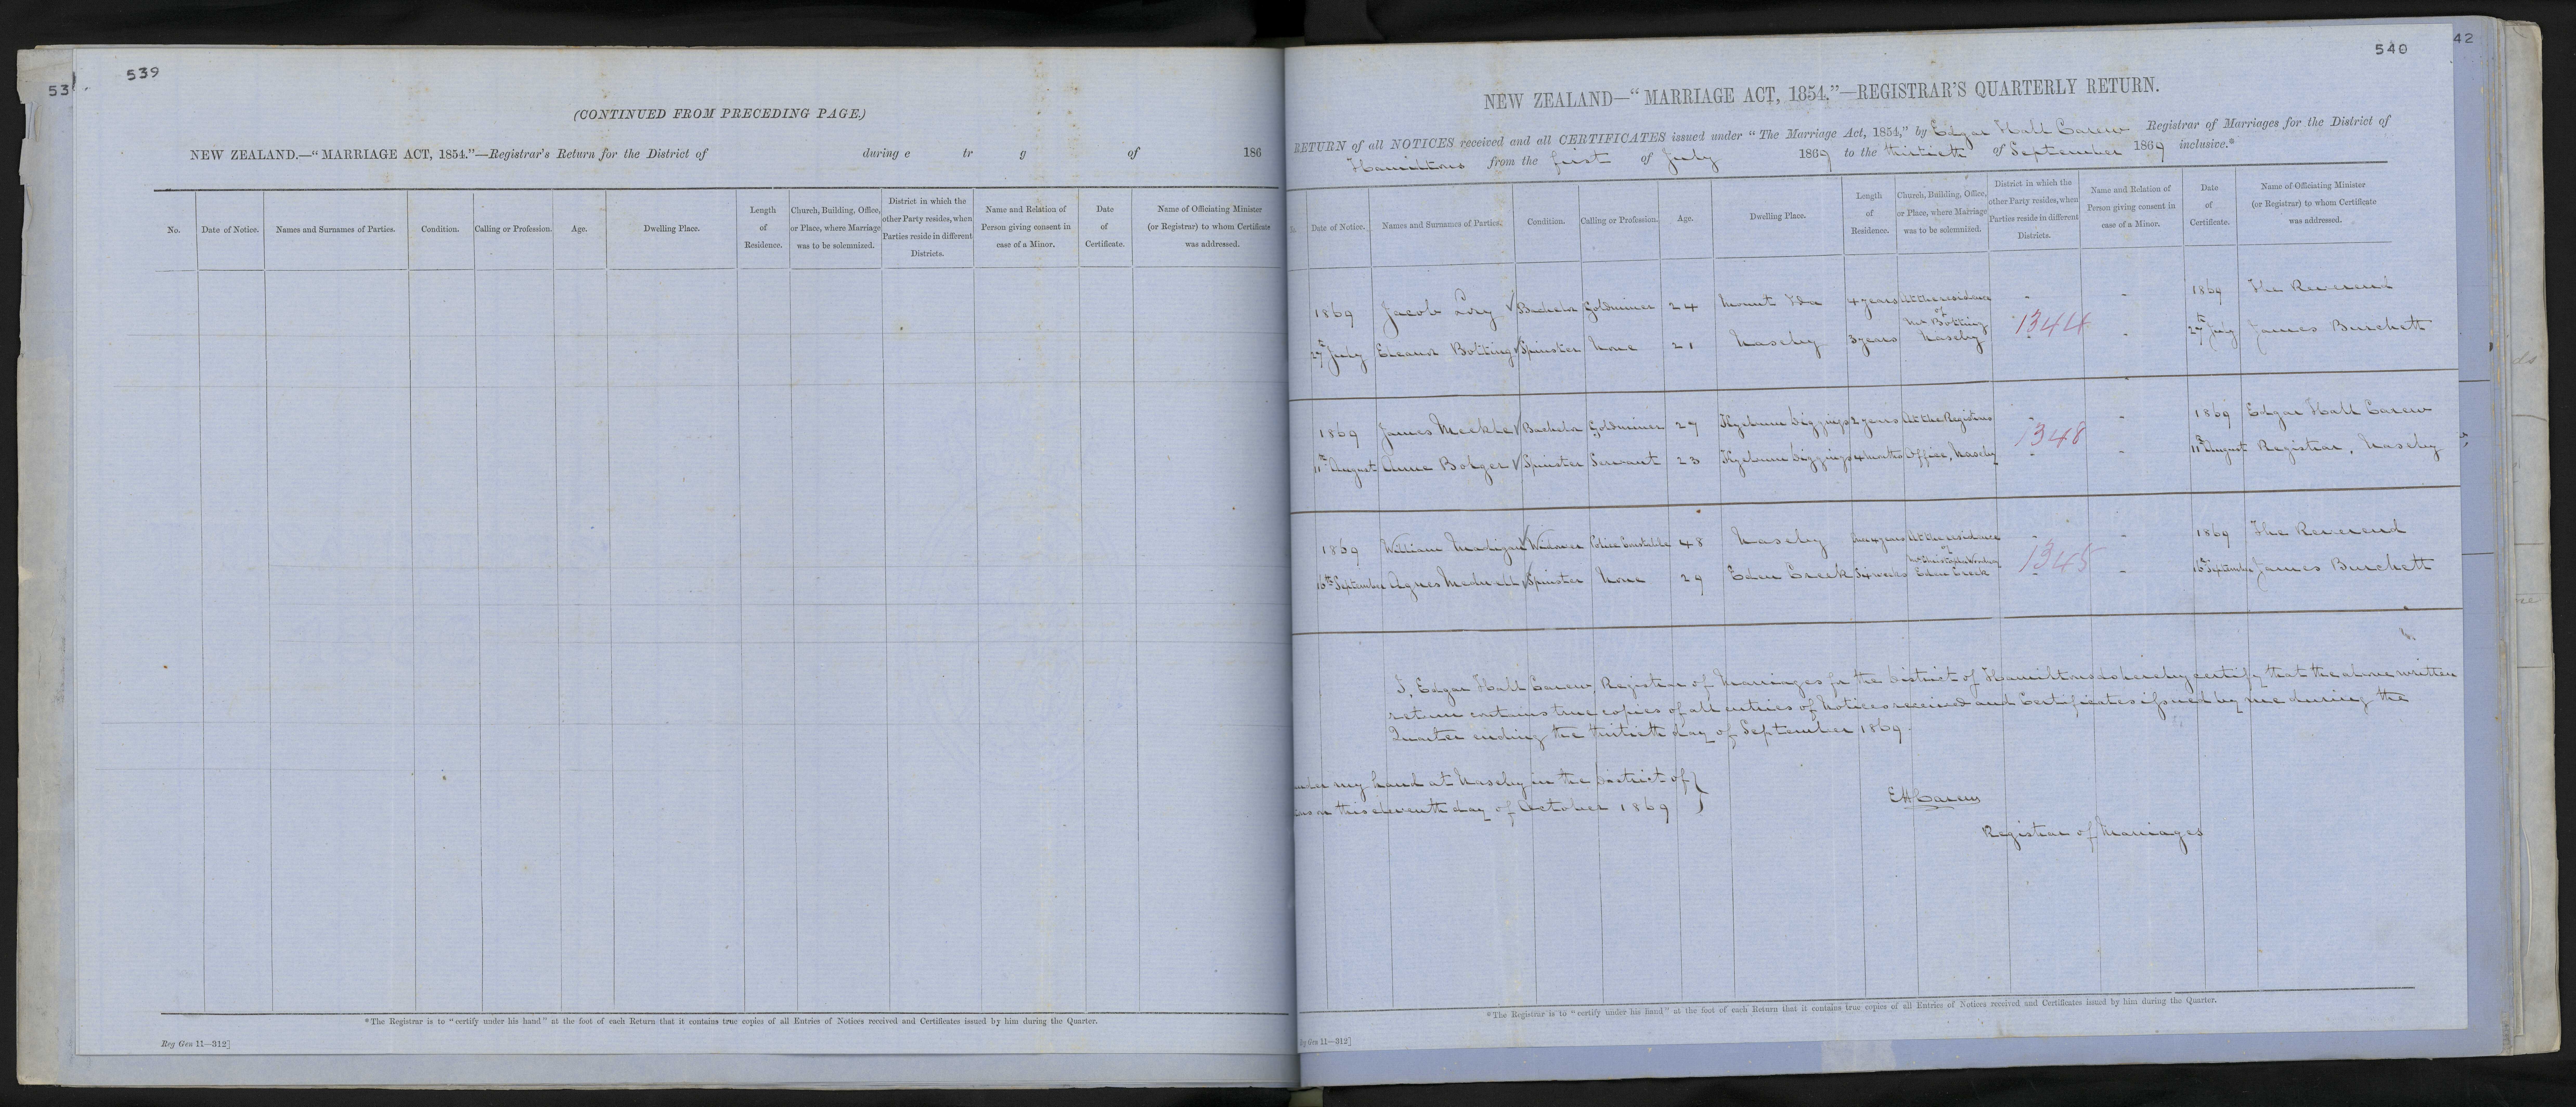 53
539
(CONTINUED FROM PRECEDING PAGE.)
NEW ZEALAND.—“MARRIAGE ACT, 1854.”—Registrar's Return for the District of during e tr g of 186
No.
Date of Notice.
Names and Surnames of Parties.
Condition.
Calling or Profession.
Age.
Dwelling Place.
Length
of
Residence.
Church, Building, Office,
or Place, where Marriage
was to be solemnized.
District in which the
other Party resides, when
Parties reside in different
Districts.
Name and Relation of
Person giving consent in
case of a Minor.
Date
of
Certificate.
Name of Officiating Minister
(or Registrar) to whom Certificate
was addressed.
*The Registrar is to “certify under his hand” at the foot of each Return that it contains true copies of all Entries of Notices received and Certificates issued by him during the Quarter.
Reg Gen 11—312]
540
42
NEW ZEALAND—“MARRIAGE ACT, 1854.”—REGISTRAR'S QUARTERLY RETURN.
RETURN of all NOTICES received and all CERTIFICATES issued under “The Marriage Act, 1854,” by Edgar Hall Carew Registrar of Marriages for the District of
Hamiltons from the first of July 1869 to the thirtieth of September 1869 inclusive.*
Date of Notice.
Names and Surnames of Parties.
Condition.
Calling or Profession.
Age.
Dwelling Place.
Length
of
Residence.
Church, Building, Office,
or Place, where Marriage
was to be solemnized.
District in which the
other Party resides, when
Parties reside in different
Districts.
Name and Relation of
Person giving consent in
case of a Minor.
Date
of
Certificate.
Name of Officiating Minister
(or Registrar) to whom Certificate
was addressed.
1869 Jacob Bachelor Goldminer 24 Mount Ida 4 years At the residence - - 1869 The Reverend
of
Mr Botting 1344
27th July Eleanor Botting Spinster None 21 Naseby 3 years Naseby - - 27th July James Burchett
1869 James Meikle Bachelor Goldminer 27 Kyeburn Diggings 2 years At the Registrars - - 1869 Edgar Hall Carew
1348
11th August Anne Bolger Spinster Servant 23 Kyeburn Diggings 4 months Office, Naseby - - 11th August Registrar, Naseby
1869 William Madigan Widower Police Constable 48 Naseby 4 years At the residence - - 1869 The Reverend
of
Mr Christopher 1345
16th September Agnes Spinster None 29 Eden Creek Six weeks Eden Creek - - 16th September James Burchett
I, Edgar Hall Carew, Registrar of Marriages for the District of Hamiltons do hereby certify that the above written
return contains true copies of all entries of Notices received and Certificates issued by me during the
Quarter ending the thirtieth day of September 1869.
under my hand at Naseby in the District of
this eleventh day of October 1869
EHCarew
Registrar of Marriages
*The Registrar is to “certify under his hand” at the foot of each Return that it contains true copies of all Entries of Notices received and Certificates issued by him during the Quarter.
Gen 11—312]